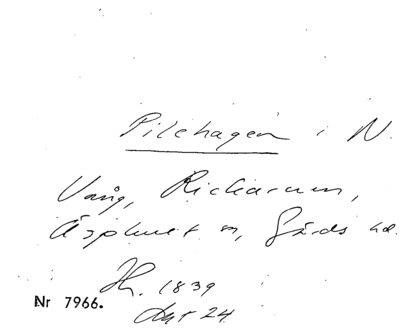 Pilehagen i N.
Vång, Rickarum,
Äsphult sn, Gärds hd.
Hh. 1839
Akt 24.
Nr 7966.